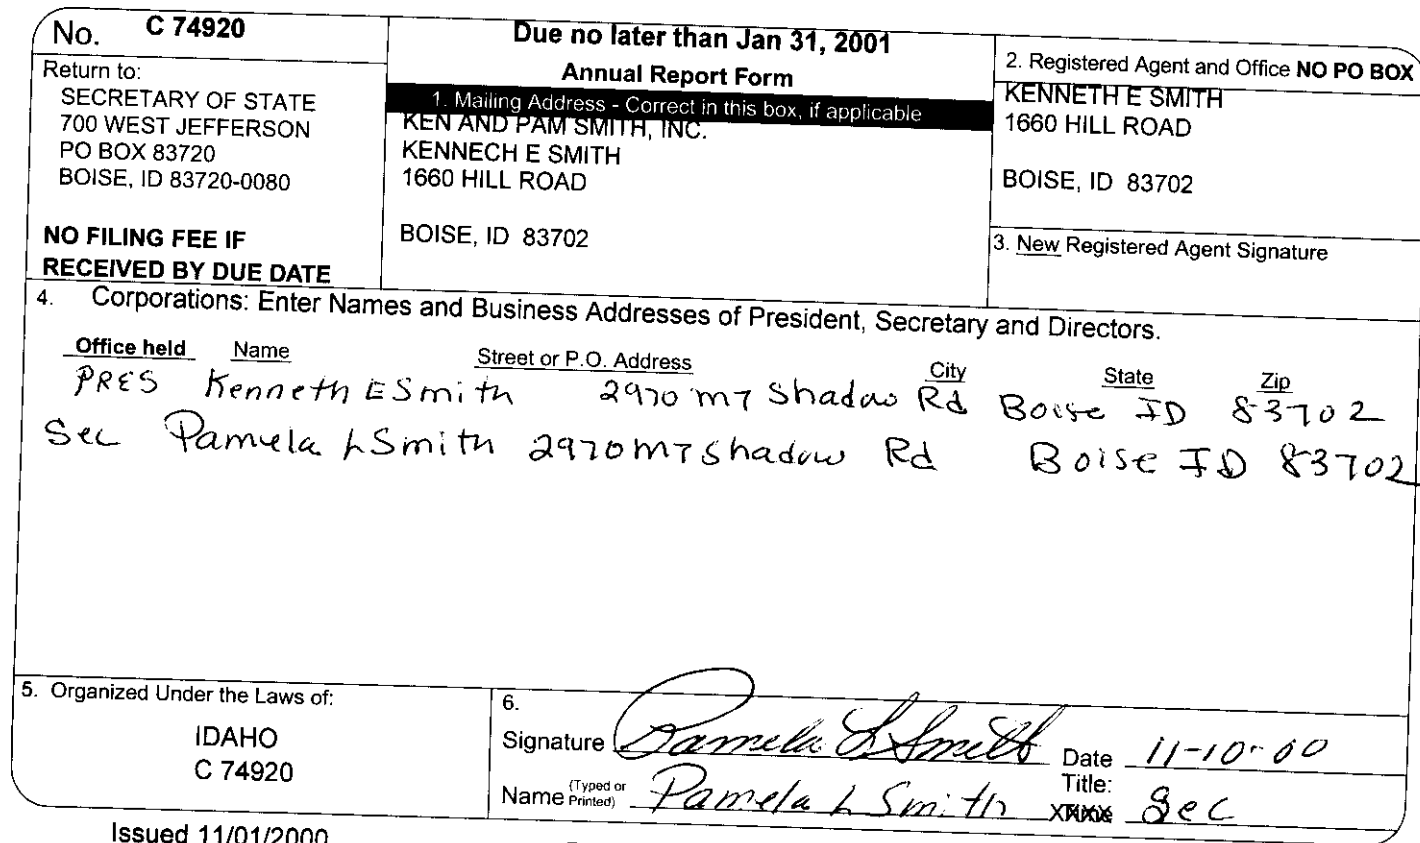 No. C 74920
Return to:
SECRETARY OF STATE
700 WEST JEFFERSON
PO BOX 83720
BOISE, ID 83720-0080
NO FILING FEE IF
RECEIVED BY DUE DATE
Due no later than Jan 31, 2001
Annual Report Form
1. Mailing Address - Correct in this box, if applicable
KEN AND PAM SMITH, INC.
KENNECH E SMITH
1660 HILL ROAD
BOISE, ID 83702
2. Registered Agent and Office NO PO BOX
KENNETH E SMITH
1660 HILL ROAD
BOISE, ID 83702
3. New Registered Agent Signature
4. Corporations: Enter Names and Business Addresses of President, Secretary and Directors.
Office held Name Street or P.O. Address City State Zip
PRES Kenneth E Smith 2970 MT Shadow Rd Boise ID 83702
Sec Pamela L Smith 2970 MT Shadow Rd Boise ID 83702
5. Organized Under the Laws of:
IDAHO
C 74920
6.
Signature Pamela L Smith Date 11-10-00
Name (Typed or Printed) Pamela L Smith Title: Sec
Issued 11/01/2000